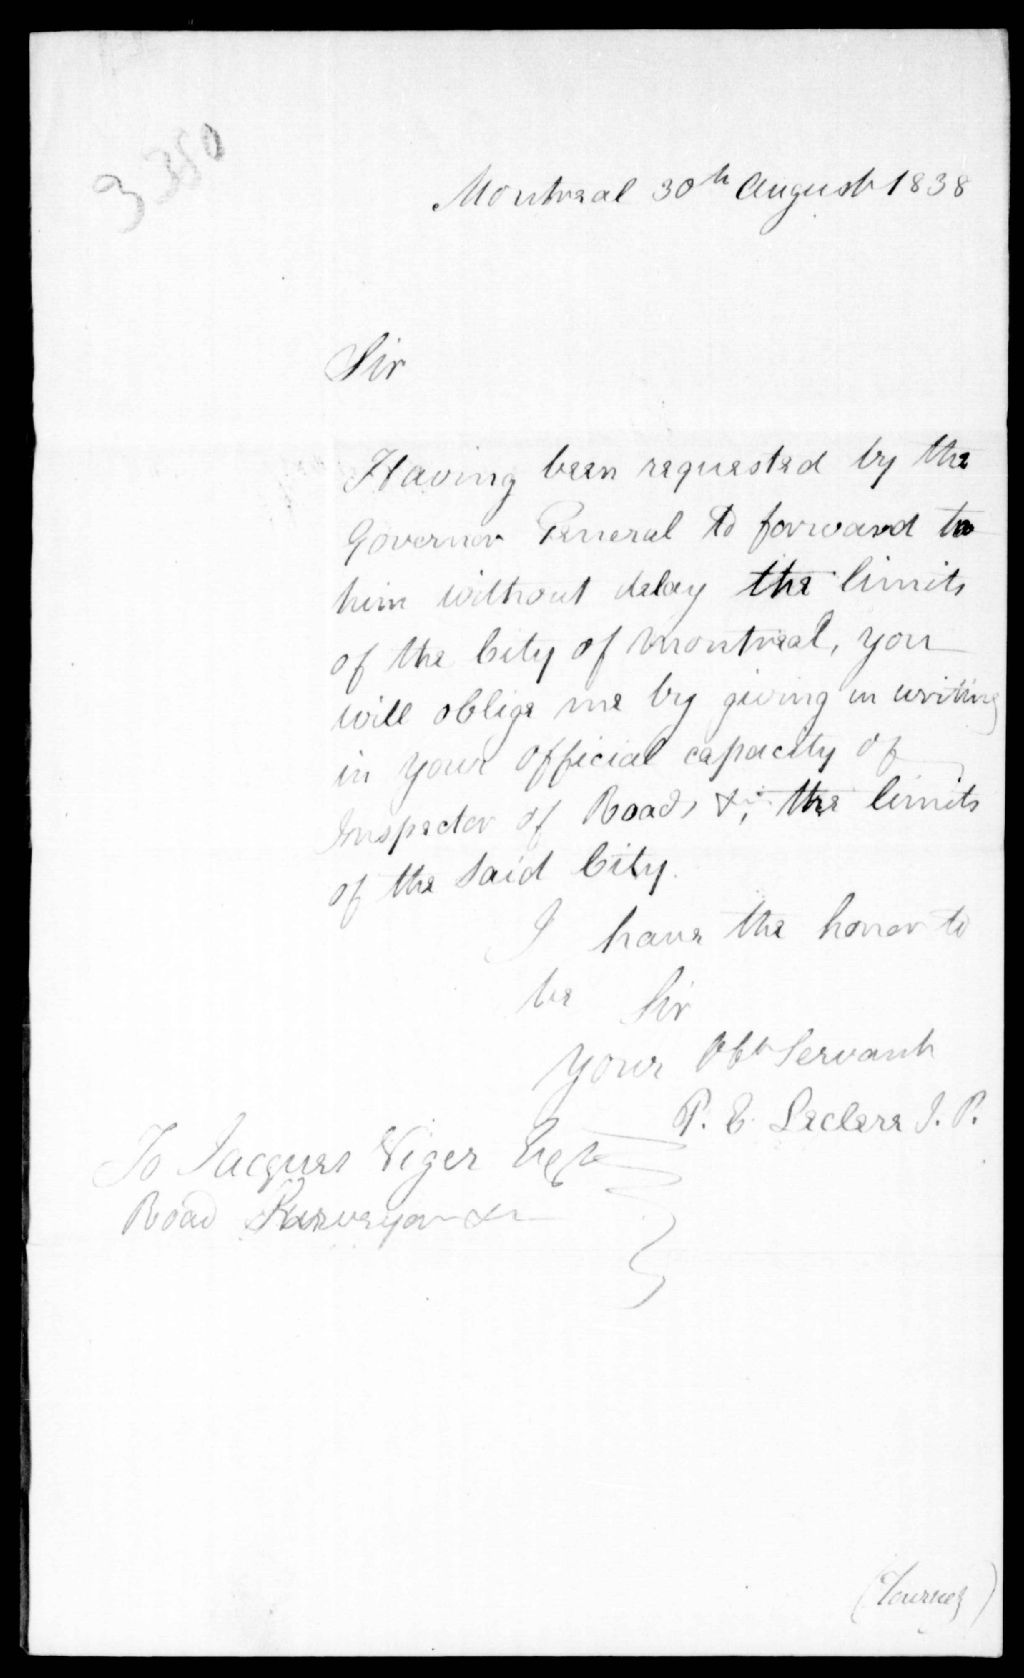 3350
Montreal 30th August 1838
Sir
Having been requested by the
Governor General to forward to
him without delay the limits
of the City of Montreal, you
will oblige me by giving in writing
in your official capacity of
Inspector of Roads &c, the limits
of the said City.
I have the honor to
be Sir
Your Obt Servant
P. E. Leclere J. P.
To Jacques Viger Esqr
Road Surveyor &c
(Tournez)